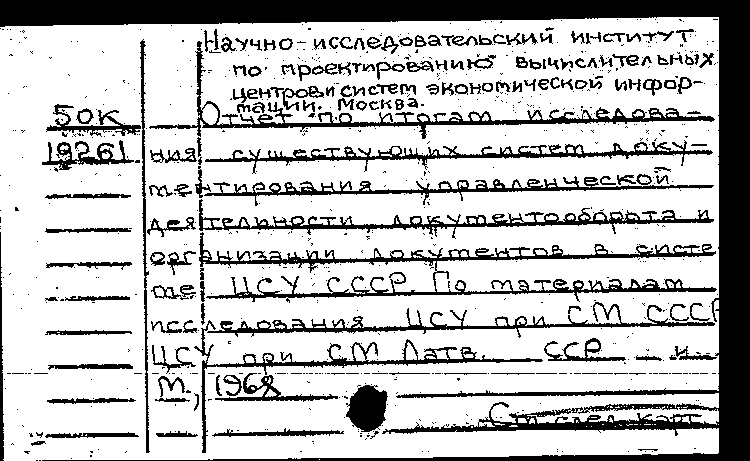 Научно-исследовательский институт
по проектированию вычислительных
центров и систем экономической инфор-
мации. Москва.
50к
Отчет по итогам исследова-
19261
ния существующих систем доку-
ментирования управленческой
деятельности, документооборота и
организации документов в систе
ме ЦСУ СССР. По материалам
исследования ЦСУ при СМ СССР
ЦСУ при СМ Латв. ССР и
М., 1968
См. след. карт